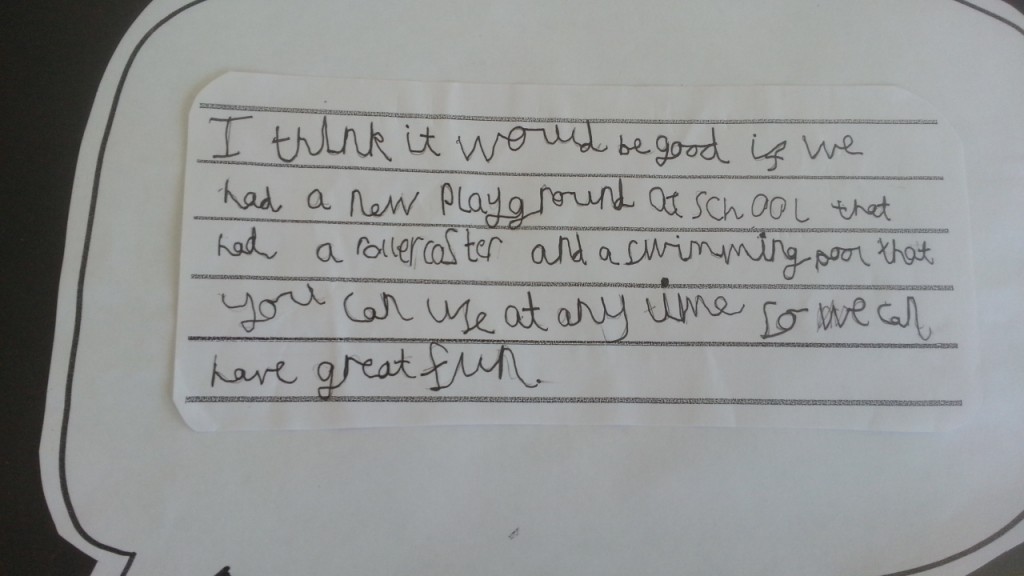 I think it would be good if we
had a new playground at school that
had a rollercoster and a swimming pool that
you can use at any time so we can
have great fun.